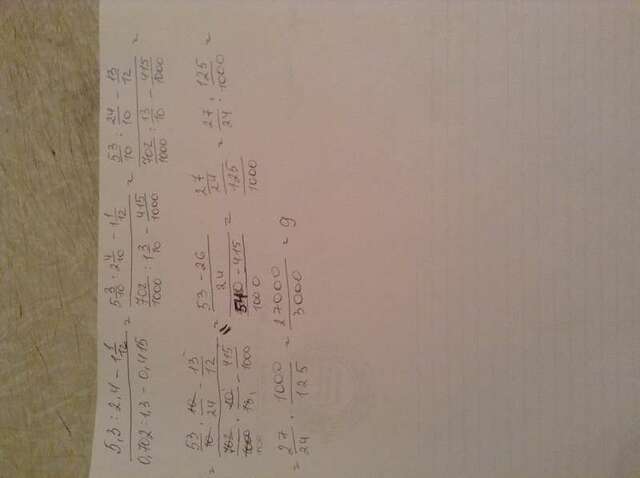 (5,3 : 2,4 − 1 1/12) / (0,702 : 1,3 − 0,415) = (5 3/10 : 2 4/10 − 1 1/12) / (702/1000 : 1 3/10 − 415/1000) = (53/10 : 24/10 − 13/12) / (702/1000 : 13/10 − 415/1000) =
= (53/10 · 10/24 − 13/12) / (702/1000 · 10/13 − 415/1000) = ((53 − 26)/24) / ((540 − 415)/1000) = (27/24) / (125/1000) = 27/24 : 125/1000 =
= 27/24 · 1000/125 = 27000/3000 = 9